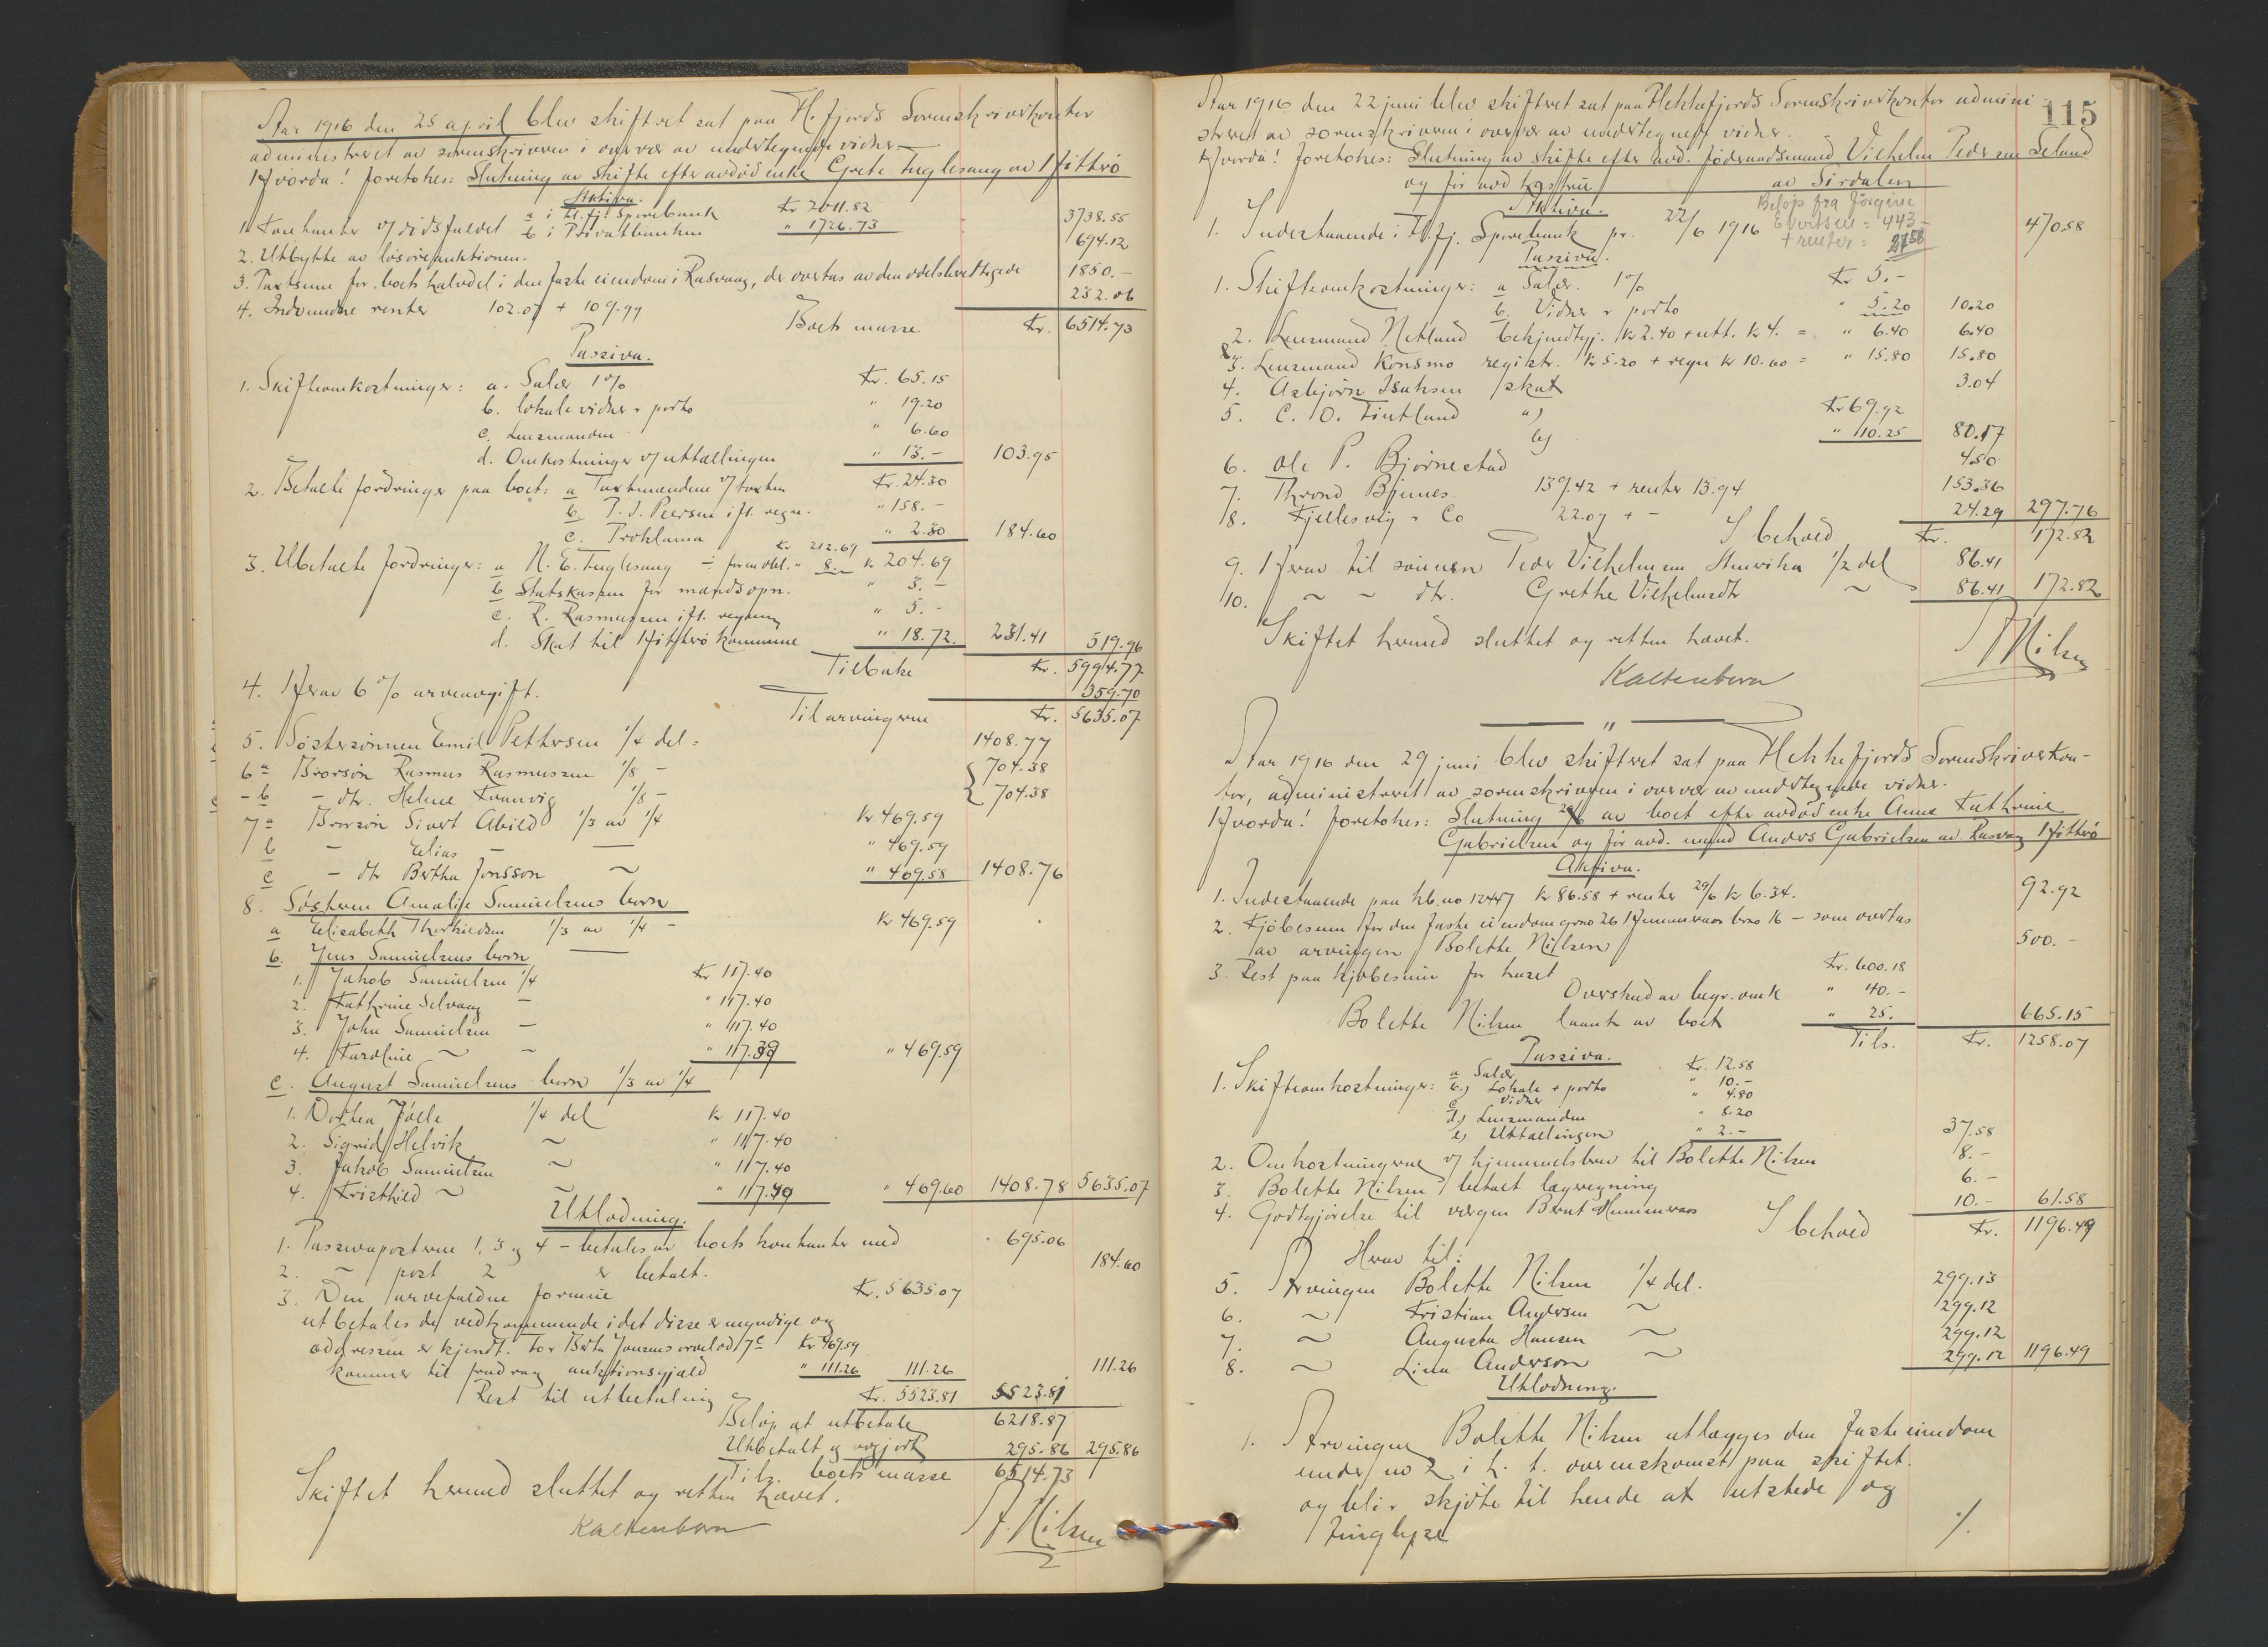 Aar 1916 den 25 april blev skiftret sat paa H.fjords Sorenskriverkontor
administreret av sorenskriveren i overvær av undertegnede vidner.
Hvorda! foretokes: Slutning av skifte efter avdöd enke Grete Fuglesang av Hitterö
Aktiva.
1. Kontanter v/ dödsfaldet a i H.fj. Sparebank Kr 2011.82
b i Privatbanken " 1726.73 3738.55
2. Utbytte av lösöreauktionen. 694.12
3. Takstsum for boets halvdel i den faste eiendom i Rasvaag, der overtas av den odelsberettigede 1850.-
4. Indvundne renter 102.07 + 109.99 232.06
Boets masse Kr. 6514.73
Passiva.
1. Skifteomkostninger: a. Salær 1% Kr. 65.15
b. lokale vidner + porto " 19.20
c. Lensmanden " 6.60
d. Omkostninger v/ uttællingen " 13.- 103.95
2. Betalte fordringer paa boet: a Takstmændene v/ taksten Kr. 24.30
b P. J. Peersen ifl. regn. " 158.-
c. Proklama " 2.30 184.60
3. Ubetalte fordringer: a N. E. Fuglesang Kr 212.69 ÷ foranstl. " 8.- Kr 204.69
b Statskassen for mandsopn. " 3.-
c. R. Rasmussen ifl. regning " 5.-
d. Skat til Hitterö kommune " 18.72 231.41 519.96
Tilbake Kr. 5994.77
4. Herav 6% arveavgift. 359.70
Til arvingerne Kr. 5635.07
5. Söstersönnen Emil Pettersen 1/4 del = 1408.77
6 a Brorsön Rasmus Rasmussen 1/8 - 704.38
- b - dtr. Helene Kvanvig 1/8 - 704.38
7 a Brorsön Sivert Abild 1/3 av 1/4 Kr 469.59
b - Elias - — " 469.59
c - dtr Bertha Jonsson ~ " 469.58 1408.76
8. Sösteren Amalie Samuelsens born
a Elisabeth Thorkildsen 1/3 av 1/4 - Kr 469.59
b. Jens Samuelsens born —
1. Jakob Samuelsen 1/4 Kr 117.40
2. Kathrine Selvaag - " 117.40
3. John Samuelsen - " 117.40
4. Karoline ~ ~ " 117.39 " 469.59
c. August Samuelsens born 1/3 av 1/4
1. Dortea Jölle 1/4 del Kr 117.40
2. Sigrid Helvik ~ " 117.40
3. Jakob Samuelsen ~ " 117.40
4. Kristhild ~ ~ " 117.40 " 469.60 1408.78 5635.07
Utlodning.
1. Passivaposterne 1, 3 og 4 - betales av boets kontanter med 695.06
2. ~ post 2 er betalt. 184.60
3. Den arvefaldne formue Kr. 5635.07
utbetales de vedkommende idet disse er myndige og
addressen er kjendt. For Berta Jonsens arvelod 7c Kr 469.59
kommer til fradrag auktionsgjæld " 111.26 111.26 111.26
Rest til utbetaling Kr. 5523.81 5523.81
Belöp at utbetale 6218.87
Utbetalt og avgjort 295.86 295.86
Tils. boets masse 6514.73
Skiftet hermed sluttet og retten hævet.
Kaltenborn J. Nilsen
115
Aar 1916 den 22 juni blev skifteret sat paa Flekkefjords Sorenskriverkontor admini-
streret av sorenskriveren i overvær av undertegnede vidner.
Hvorda! foretokes: Slutning av skifte efter avd.föderaadsmand Vilhelm Pedersen Seland
og för avd hustru av Sirdalen
Aktiva.
Belöp fra Jörgine
Evertsen = 443-
+ renter = 27.58
1. Indestaaende i Fl.fj. Sparebank pr. 22/6 1916 470.58
Passiva.
1. Skifteomkostninger: a Salær. 1% Kr 5.-
b. Vidner + porto " 5.20 10.20
2. Lensmand Netland bekjendtgj. Kr 2.40 + utt. Kr 4. = " 6.40 6.40
3. Lensmand Konsmo registr. Kr 5.20 + regn Kr 10.60 = " 15.80 15.80
4. Asbjörn Isaksen skat 3.04
5. C. O. Fintland a) Kr 69.92
b) " 10.25 80.17
6. Ole P. Björnestad 4.50
7. Thrond Bjunes 139.42 + renter 13.94 153.36
8. Fjellesvig & Co 22.07 + - 24.29 297.76
I behold Kr. 172.82
9. Herav til sönnen Peder Vilhelmsen Amerika 1/2 del 86.41
10. ~ ~ dtr. Grethe Vilhelmsdtr ~ 86.41 172.82
Skiftet hermed sluttet og retten hævet.
Kaltenborn J Nilsen
"
Aar 1916 den 29 juni blev skifteret sat paa Flekkefjords Sorenskriverkon-
tor, administreret av sorenskriveren i overvær av undertegnede vidner.
Hvorda! foretokes: Slutning 29/6 av boet efter avdöd enke Anna Kathrine
Gabrielsen og för avd. mand Anders Gabrielsen av Rasvaag Hitterö
Aktiva.
1. Indestaaende paa hb. no 12447 Kr 86.58 + renter 29/6 Kr 6.34. 92.92
2. Kjöbesum for den faste eiendom grno 26 Hummeraas brno 16 - som overtas
av arvingen Bolette Nilsen 500.-
3. Rest paa kjöbesum for huset Kr. 600.18
Overskud av begr. omk " 40.-
Bolette Nilsen laant av boet " 25. 665.15
Tils. Kr. 1258.07
Passiva.
1. Skifteomkostninger: a Salær Kr. 12.58
b) Lokale + porto " 10.-
c vidner " 4.80
d) Lensmanden " 8.20
e) Uttællingen " 2.- 37.58
2. Omkostningerne v/ hjemmelsbrev til Bolette Nilsen 8.-
3. Bolette Nilsen betalt lægeregning 6.-
4. Godtgjörelse til værgen Bernt Hummeraas 10.- 61.58
I behold Kr. 1196.49
Herav til:
5. Arvingen Bolette Nilsen 1/4 del. 299.13
6. ~ Kristian Andersen ~ 299.12
7. ~ Augusta Hansen ~ 299.12
8. ~ Lina Anderson ~ 299.12 1196.49
Utlodning.
1. Arvingen Bolette Nilsen utlægges den faste eiendom
under no 2 i h. t. overenskomst paa skiftet.
og blir skjöte til hende at utstede og
tinglyse ./.